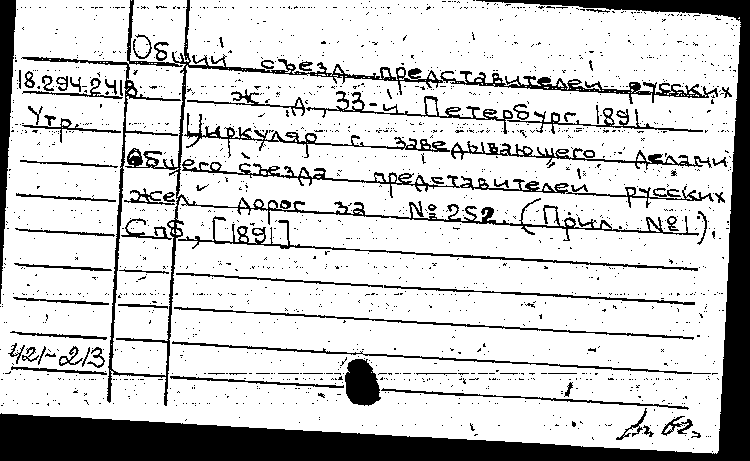 Общий съезд представителей русских
18.294.2418. ж. д., 33-й. Петербург. 1891.
Утр. Циркуляр г. заведывающего делами
Общего съезда представителей русских
жел. дорог за №252 (Прил. №1).
Спб., [1891].
421-213
62.